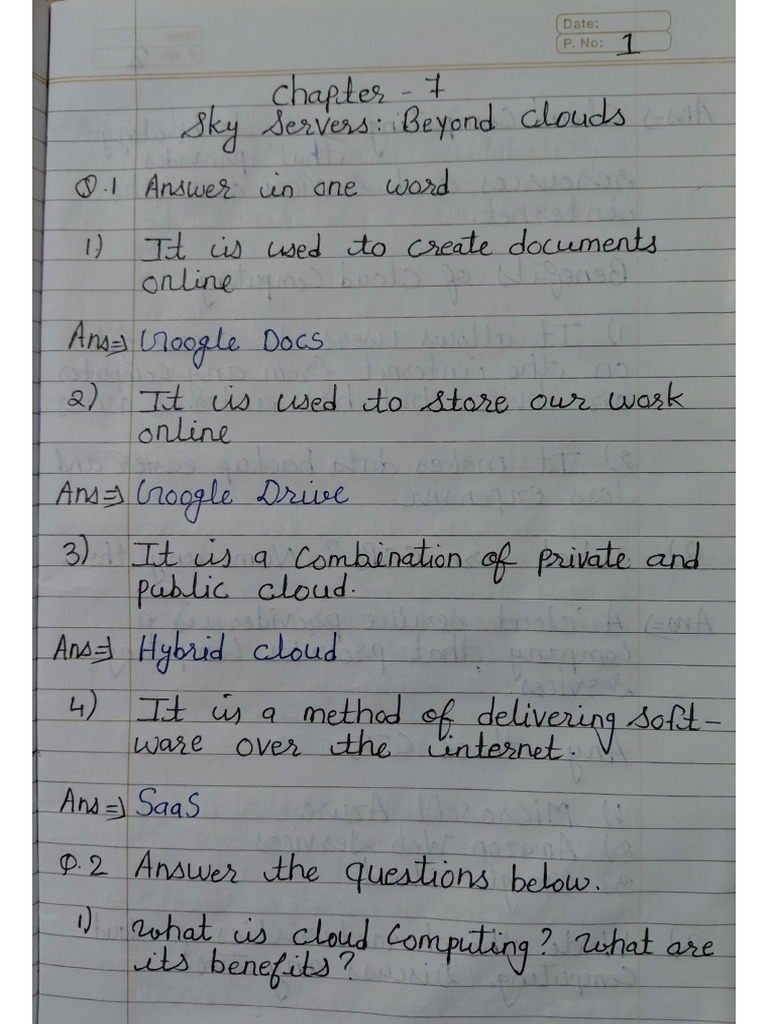 Date:
P. No: 1
Chapter - 7
Sky Servers: Beyond Clouds
Q.1 Answer in one word
1) It is used to create documents
online
Ans⇒ Google Docs
2) It is used to store our work
online
Ans⇒ Google Drive
3) It is a combination of private and
public cloud.
Ans⇒ Hybrid cloud
4) It is a method of delivering soft-
ware over the internet.
Ans⇒ SaaS
Q.2 Answer the questions below.
1) What is cloud computing? What are
its benefits?